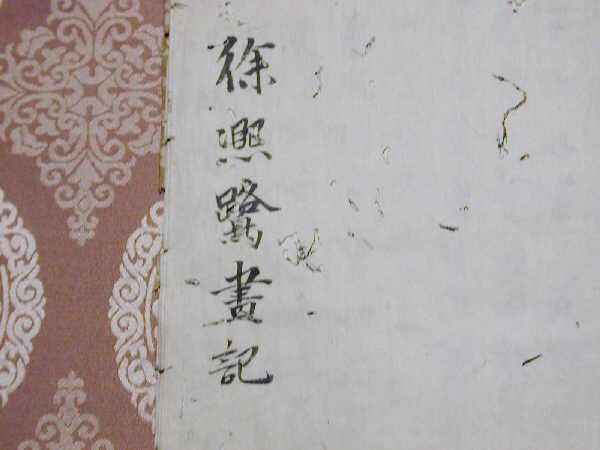 徐熈鷺畫記